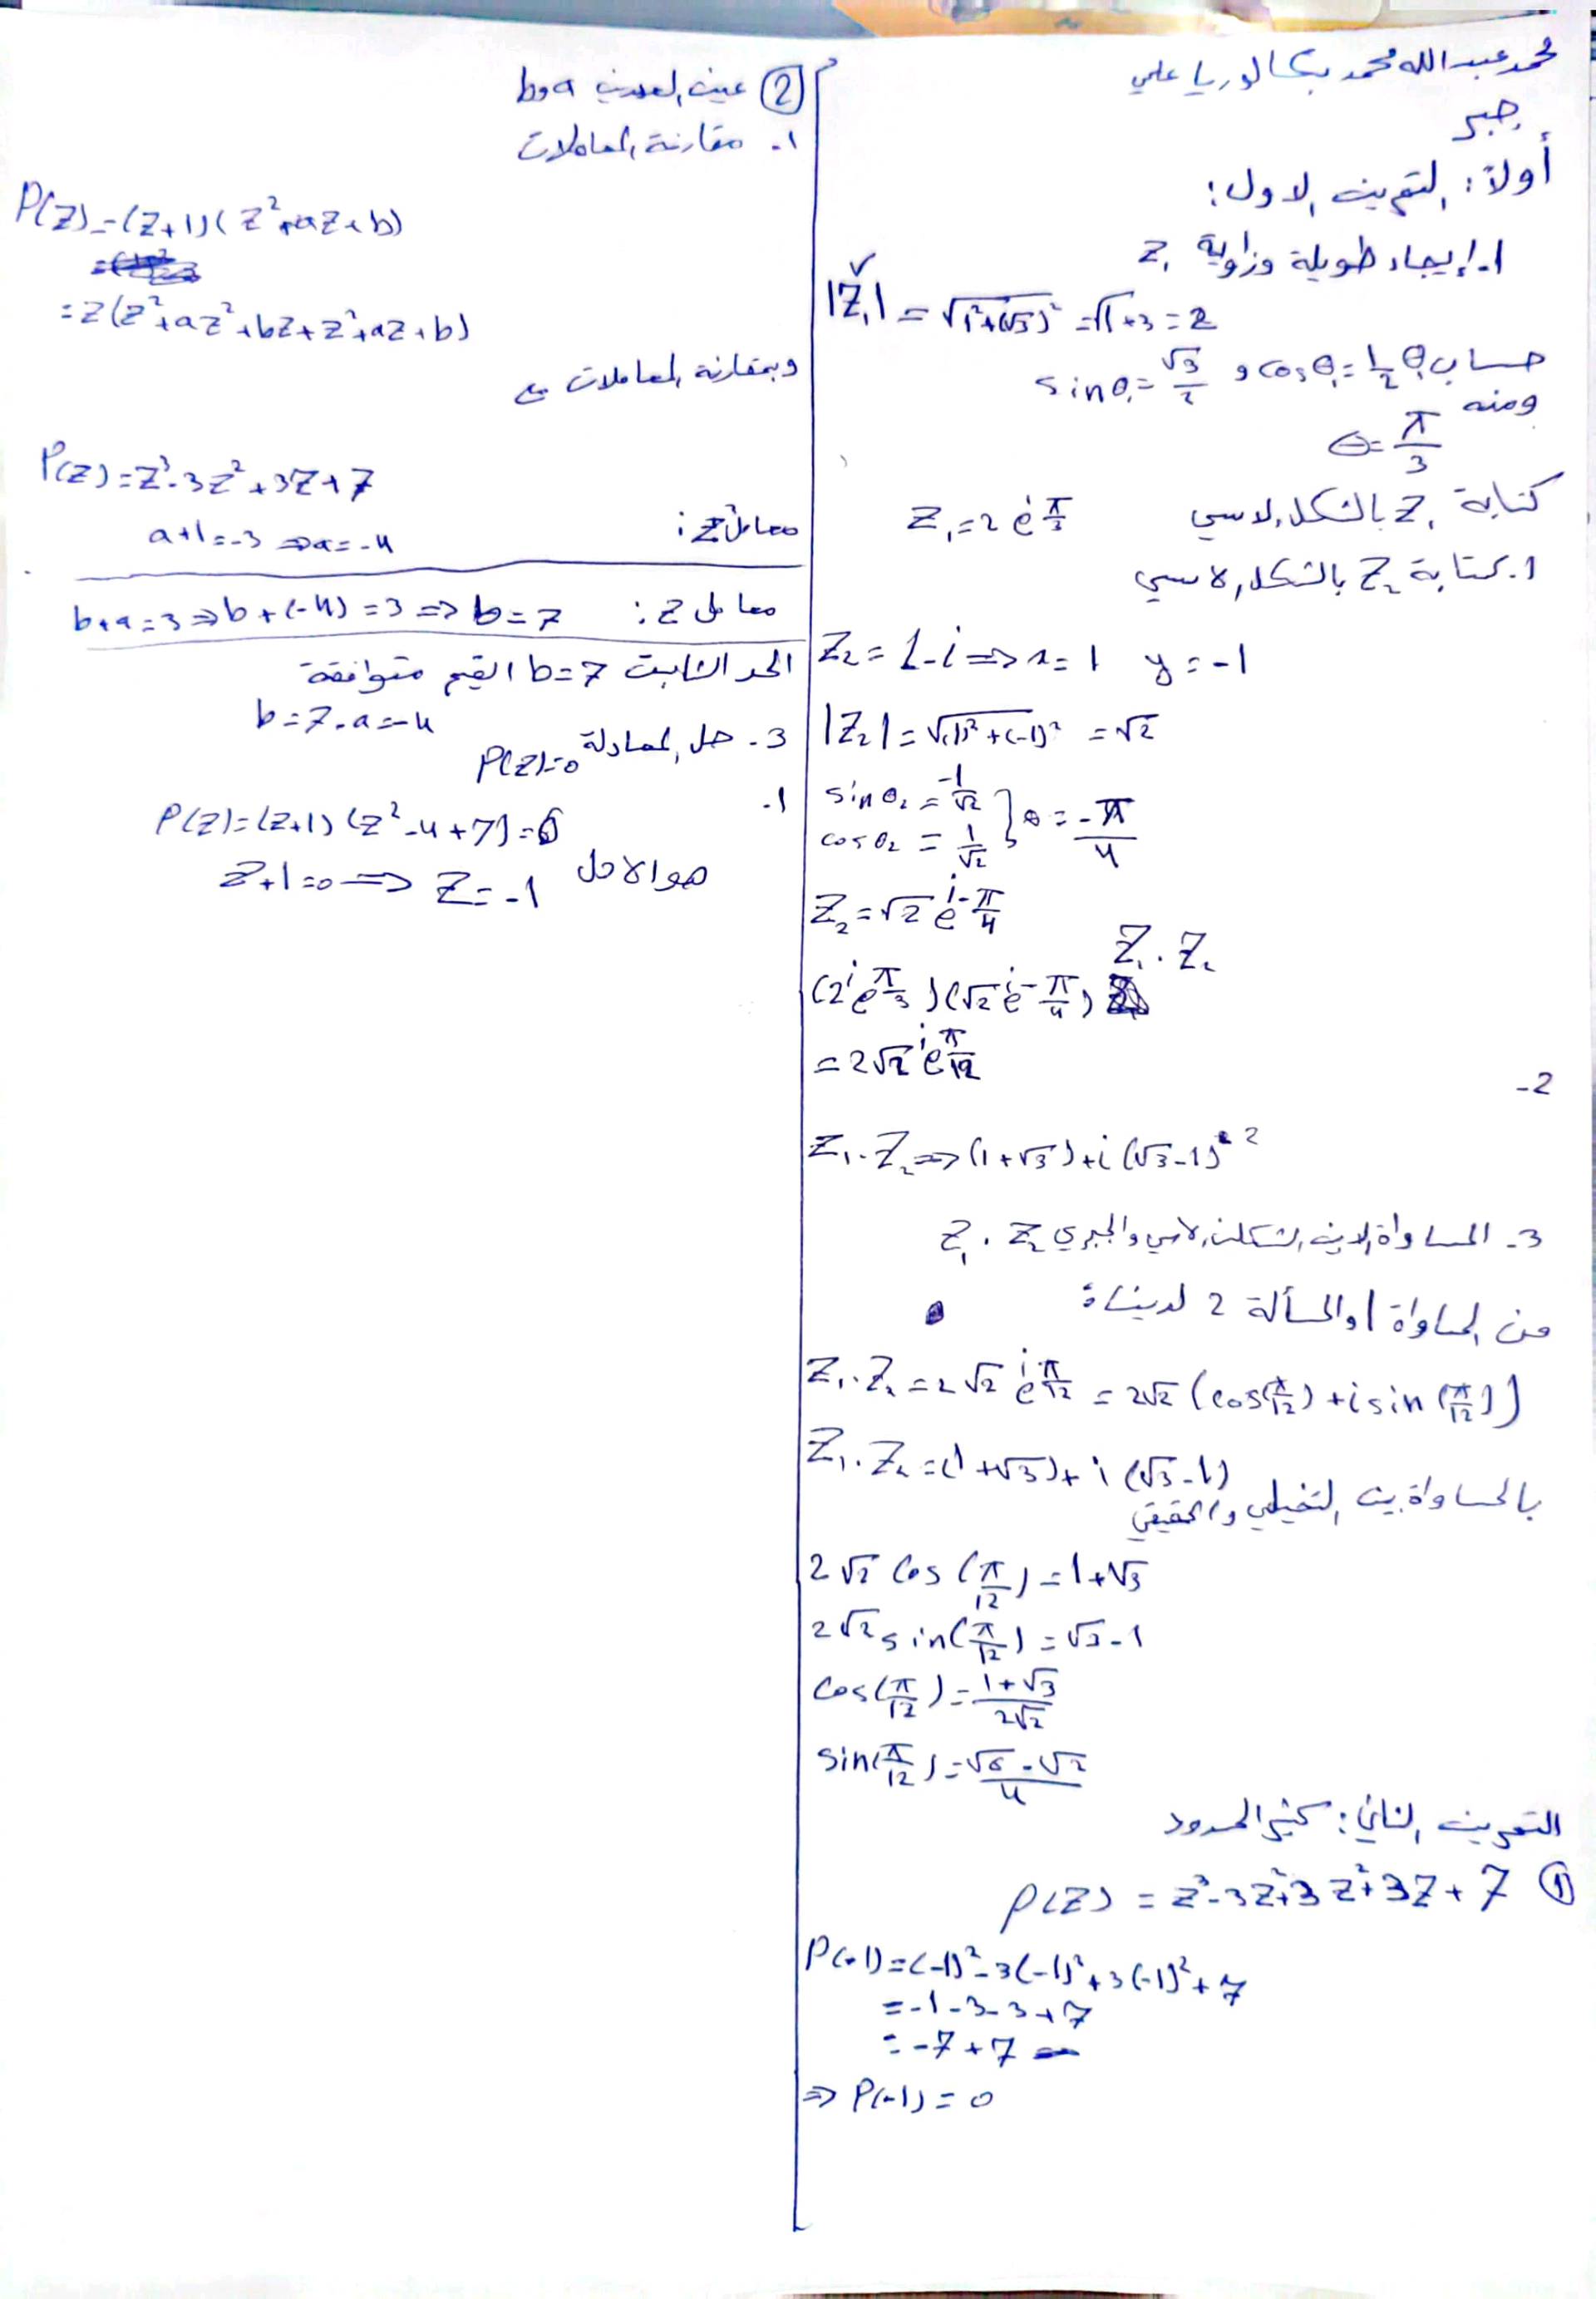 محمد عبد الله محمد بكالوريا علمي
جبر
أولاً: التمرين الاول:
1- إيجاد طويلة وزاوية Z₁
|Z₁| = √1²+(√3)² = √1+3 = 2
حساب θ₁ cosθ₁ = 1/2 و sinθ₁ = √3/2
ومنه
θ = π/3
كتابة Z₁ بالشكل الاسي Z₁ = 2 e^(i π/3)
1. كتابة Z₂ بالشكل الاسي
Z₂ = 1-i ⇒ x = 1 y = -1
|Z₂| = √(1)²+(-1)² = √2
sin θ₂ = -1/√2
cos θ₂ = 1/√2 } θ = -π/4
Z₂ = √2 e^(i -π/4)
Z₁ . Z₂
(2 e^(i π/3)) (√2 e^(i -π/4))
= 2√2 e^(i π/12)
-2
Z₁ . Z₂ ⇒ (1+√3) + i (√3-1) ²
3- المساواة الشكلين الاسي والجبري Z₁ . Z₂
من المساواة 1 والمسألة 2 لدينا:
Z₁ . Z₂ = 2√2 e^(i π/12) = 2√2 (cos(π/12) + i sin(π/12))
Z₁ . Z₂ = (1+√3) + i (√3-1)
بالمساواة بين التخيلي والحقيقي
2√2 cos(π/12) = 1+√3
2√2 sin(π/12) = √3-1
cos(π/12) = 1+√3/2√2
sin(π/12) = √6-√2/4
التمرين الثاني: كثير الحدود
① P(Z) = Z³-3Z²+3Z²+3Z+7
P(-1) = (-1)²-3(-1)²+3(-1)²+7
= -1-3-3+7
= -7+7
⇒ P(-1) = 0
② عين العددين a و b
1- مقارنة المعاملات
P(Z) = (Z+1)(Z²+aZ+b)
= Z(Z²+aZ²+bZ+Z²+aZ+b)
وبمقارنة المعاملات مع
P(Z) = Z³-3Z²+3Z+7
معامل Z²: a+1 = -3 ⇒ a = -4
معامل Z: b+a = 3 ⇒ b+(-4) = 3 ⇒ b = 7
الحد الثابت b = 7 القيم متوافقة
b = 7 . a = -4
3- حل المعادلة P(Z) = 0
1- P(Z) = (Z+1) (Z²-4+7) = 0
Z+1 = 0 ⇒ Z = -1 هو الاحل